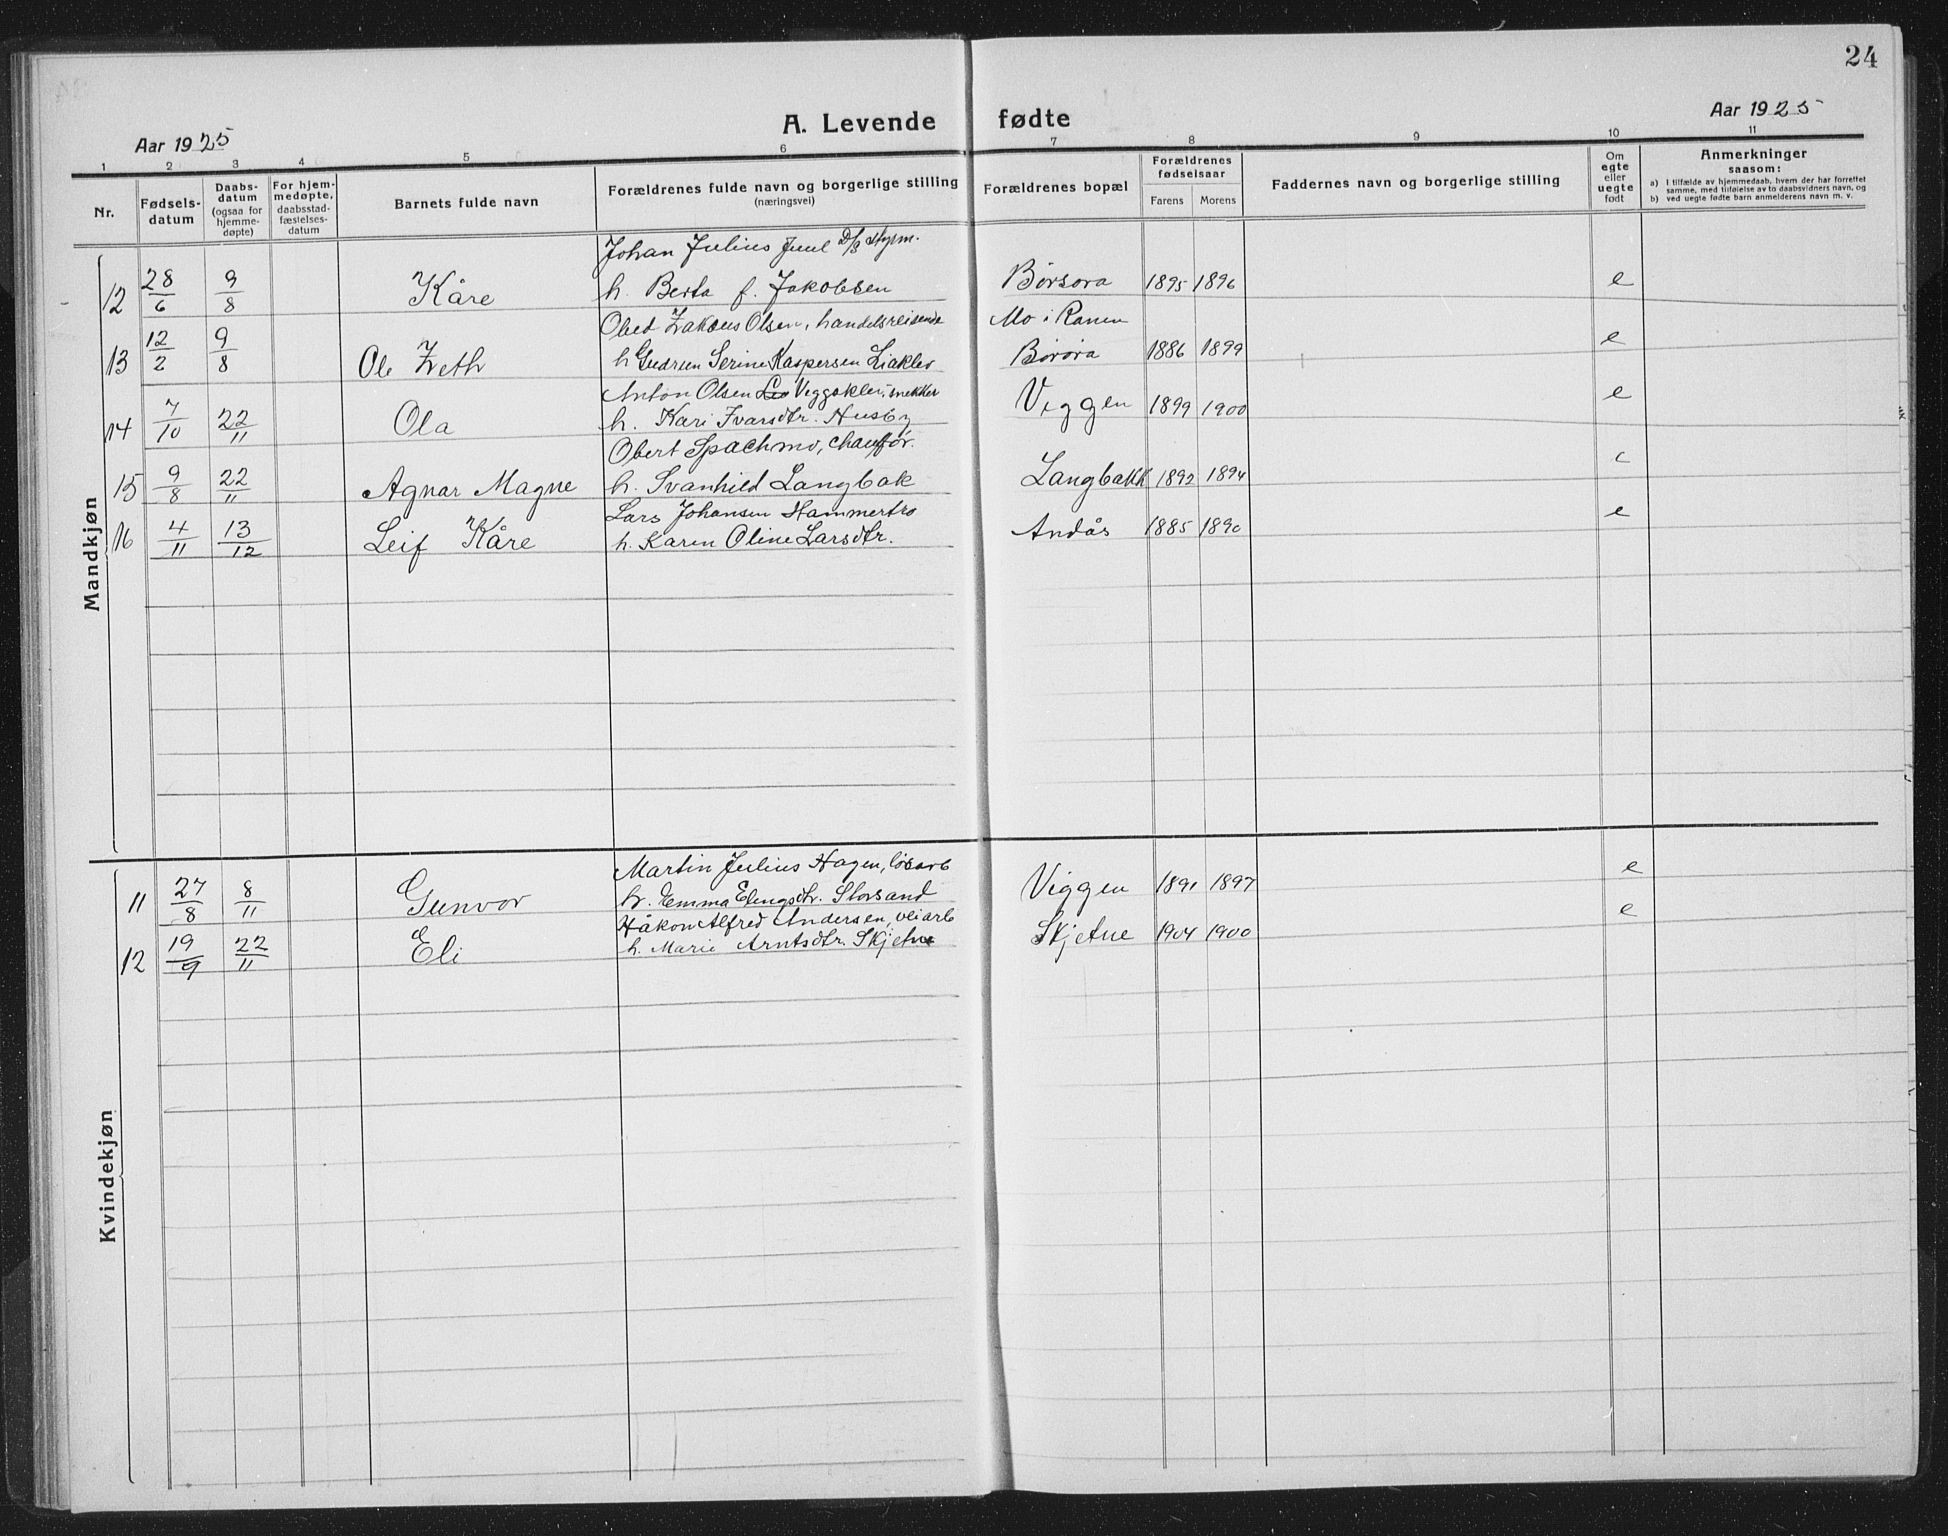 24
Aar 1925
A. Levende fødte
Aar 1925
1 2 3 4 5 6 7 8 9 10 11
Nr.
Fødsels-
datum
Daabs-
datum
(ogsaa for
hjemme-
døpte)
For hjem-
medøpte,
daabsstad-
fæstelses-
datum
Barnets fulde navn
Forældrenes fulde navn og borgerlige stilling
(næringsvei)
Forældrenes bopæl
Forældrenes
fødselsaar
Farens Morens
Faddernes navn og borgerlige stilling
Om
egte
eller
uegte
født
Anmerkninger
saasom:
a) I tilfælde av hjemmedaab, hvem der har forrettet
samme, med tilføielse av to daabsvidners navn, og
b) ved uegte fødte barn anmelderens navn m. v.
Mandkjøn
Johan Julius Juul D/S Styrm.
12 28/6 9/8 Kåre h. Berta f. Jakobsen Børsøra 1895 1896 e
Obed Zakæus Olsen, handelsreisende Mo i Ranen
13 12/2 9/8 Ole Zeth h. Gudrun Serine Kaspersen Liaklev Børøra 1886 1899 e
Anton Olsen Veggsklei, snekker
14 7/10 22/11 Ola h. Kari Ivarsdtr. Husby Viggen 1899 1900 e
Obert Spachmo, chauffør.
15 9/8 22/11 Agnar Magne h. Svanhild Langbak Langbakk 1892 1894 e
Lars Johansen Hammertrø
16 4/11 13/12 Leif Kåre h. Karen Oline Larsdtr. Andås 1885 1890 e
Kvindekjøn
Martin Julius Hagen, løsarb
11 27/8 8/11 Gunvor h. Emma Elingsdtr. Storsand Viggen 1891 1897 e
Håkon Alfred Andersen, veiarb
12 19/9 22/11 Eli h. Marie Arntsdtr. Skjetne Skjetne 1904 1900 e